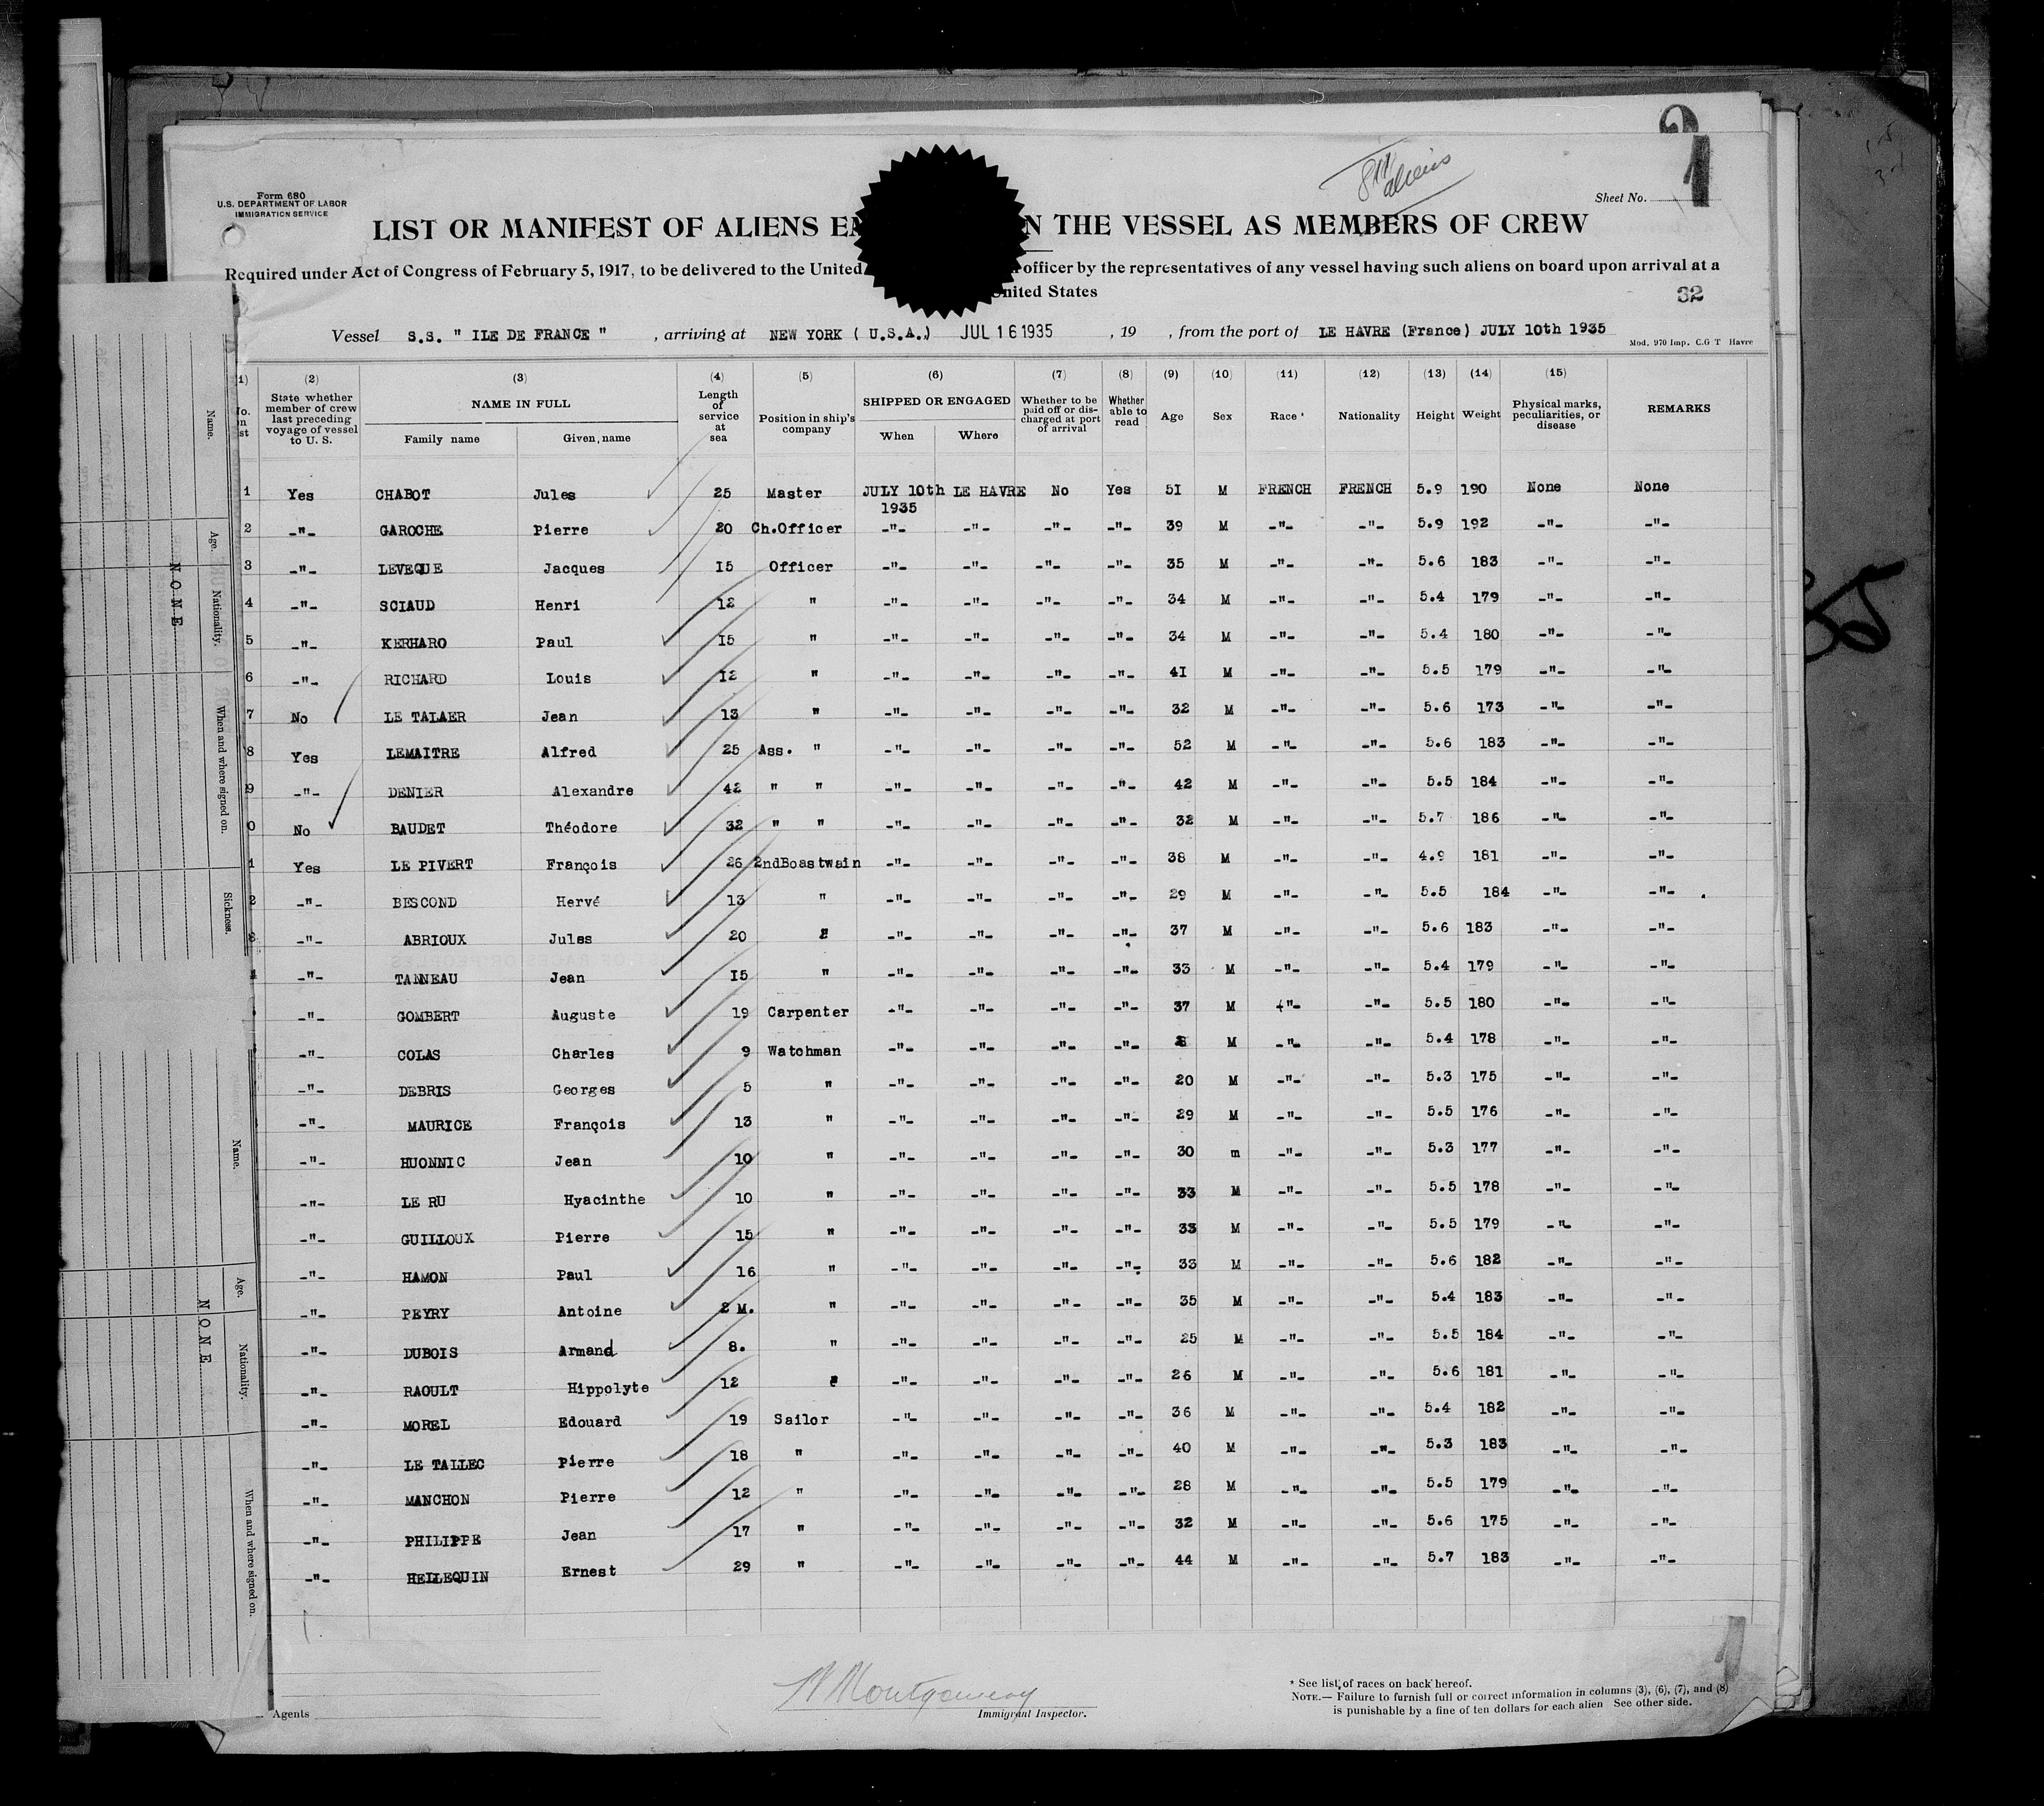 Form 680
U.S. DEPARTMENT OF LABOR
IMMIGRATION SERVICE
aliens
Sheet No. 1
LIST OR MANIFEST OF ALIENS EM N THE VESSEL AS MEMBERS OF CREW
Required under Act of Congress of February 5, 1917, to be delivered to the United officer by the representatives of any vessel having such aliens on board upon arrival at a
United States
32
Vessel S.S. " ILE DE FRANCE " , arriving at NEW YORK ( U.S.A.) JUL 16 1935 , 19 , from the port of LE HAVRE (France) JULY 10th 1935
Mod. 970 Imp. C.G T Havre
(2) (3) (4) (5) (6) (7) (8) (9) (10) (11) (12) (13) (14) (15)
State whether member of crew last preceding voyage of vessel to U. S. NAME IN FULL Family name Given name Length of service at sea Position in ship's company SHIPPED OR ENGAGED When Where Whether to be paid off or discharged at port of arrival Whether able to read Age Sex Race * Nationality Height Weight Physical marks, peculiarities, or disease REMARKS
1 Yes CHABOT Jules 25 Master JULY 10th 1935 LE HAVRE No Yes 51 M FRENCH FRENCH 5.9 190 None None
2 -"- GAROCHE Pierre 20 Ch.Officer -"- -"- -"- -"- 39 M -"- -"- 5.9 192 -"- -"-
3 -"- LEVEQUE Jacques I5 Officer -"- -"- -"- -"- 35 M -"- -"- 5.6 183 -"- -"-
4 -"- SCIAUD Henri 12 " -"- -"- -"- -"- 34 M -"- -"- 5.4 179 -"- -"-
5 -"- KERHARO Paul I5 " -"- -"- -"- -"- 34 M -"- -"- 5.4 180 -"- -"-
6 -"- RICHARD Louis I2 " -"- -"- -"- -"- 4I M -"- -"- 5.5 179 -"- -"-
7 No LE TALAER Jean 13 " -"- -"- -"- -"- 32 M -"- -"- 5.6 173 -"- -"-
8 Yes LEMAITRE Alfred 25 Ass. " -"- -"- -"- -"- 52 M -"- -"- 5.6 183 -"- -"-
9 -"- DENIER Alexandre 42 " " -"- -"- -"- -"- 42 M -"- -"- 5.5 184 -"- -"-
0 No BAUDET Théodore 32 " " -"- -"- -"- -"- 32 M -"- -"- 5.7 186 -"- -"-
1 Yes LE PIVERT François 26 2ndBoastwain -"- -"- -"- -"- 38 M -"- -"- 4.9 181 -"- -"-
2 -"- BESCOND Hervé 13 " -"- -"- -"- -"- 29 M -"- -"- 5.5 184 -"- -"-
-"- ABRIOUX Jules 20 -"- -"- -"- -"- 37 M -"- -"- 5.6 183 -"- -"-
-"- TANNEAU Jean I5 " -"- -"- -"- -"- 33 M -"- -"- 5.4 179 -"- -"-
-"- GOMBERT Auguste 19 Carpenter -"- -"- -"- -"- 37 M -"- -"- 5.5 180 -"- -"-
-"- COLAS Charles 9 Watchman -"- -"- -"- -"- M -"- -"- 5.4 178 -"- -"-
-"- DEBRIS Georges 5 " -"- -"- -"- -"- 20 M -"- -"- 5.3 175 -"- -"-
-"- MAURICE François 13 " -"- -"- -"- -"- 29 M -"- -"- 5.5 176 -"- -"-
-"- HUONNIC Jean 10 " -"- -"- -"- -"- 30 m -"- -"- 5.3 177 -"- -"-
-"- LE RU Hyacinthe 10 " -"- -"- -"- -"- 33 M -"- -"- 5.5 178 -"- -"-
-"- GUILLOUX Pierre 15 " -"- -"- -"- -"- 33 M -"- -"- 5.5 179 -"- -"-
-"- HAMON Paul 16 " -"- -"- -"- -"- 33 M -"- -"- 5.6 182 -"- -"-
-"- PEYRY Antoine 2 M. " -"- -"- -"- -"- 35 M -"- -"- 5.4 183 -"- -"-
-"- DUBOIS Armand 8. " -"- -"- -"- -"- 25 M -"- -"- 5.5 184 -"- -"-
-"- RAOULT Hippolyte 12 -"- -"- -"- -"- 26 M -"- -"- 5.6 181 -"- -"-
-"- MOREL Edouard 19 Sailor -"- -"- -"- -"- 36 M -"- -"- 5.4 182 -"- -"-
-"- LE TALLEC Pierre 18 " -"- -"- -"- -"- 40 M -"- -"- 5.3 183 -"- -"-
-"- MANCHON Pierre 12 " -"- -"- -"- -"- 28 M -"- -"- 5.5 179 -"- -"-
-"- PHILIPPE Jean 17 " -"- -"- -"- -"- 32 M -"- -"- 5.6 175 -"- -"-
-"- HELLEQUIN Ernest 29 " -"- -"- -"- -"- 44 M -"- -"- 5.7 183 -"- -"-
Montgomery
Agents
Immigrant Inspector.
* See list of races on back hereof.
NOTE.— Failure to furnish full or correct information in columns (3), (6), (7), and (8)
is punishable by a fine of ten dollars for each alien See other side.
Name.
Age.
Nationality.
When and where signed on.
Sickness.
NONE
Name.
Age.
Nationality.
When and where signed on.
NONE